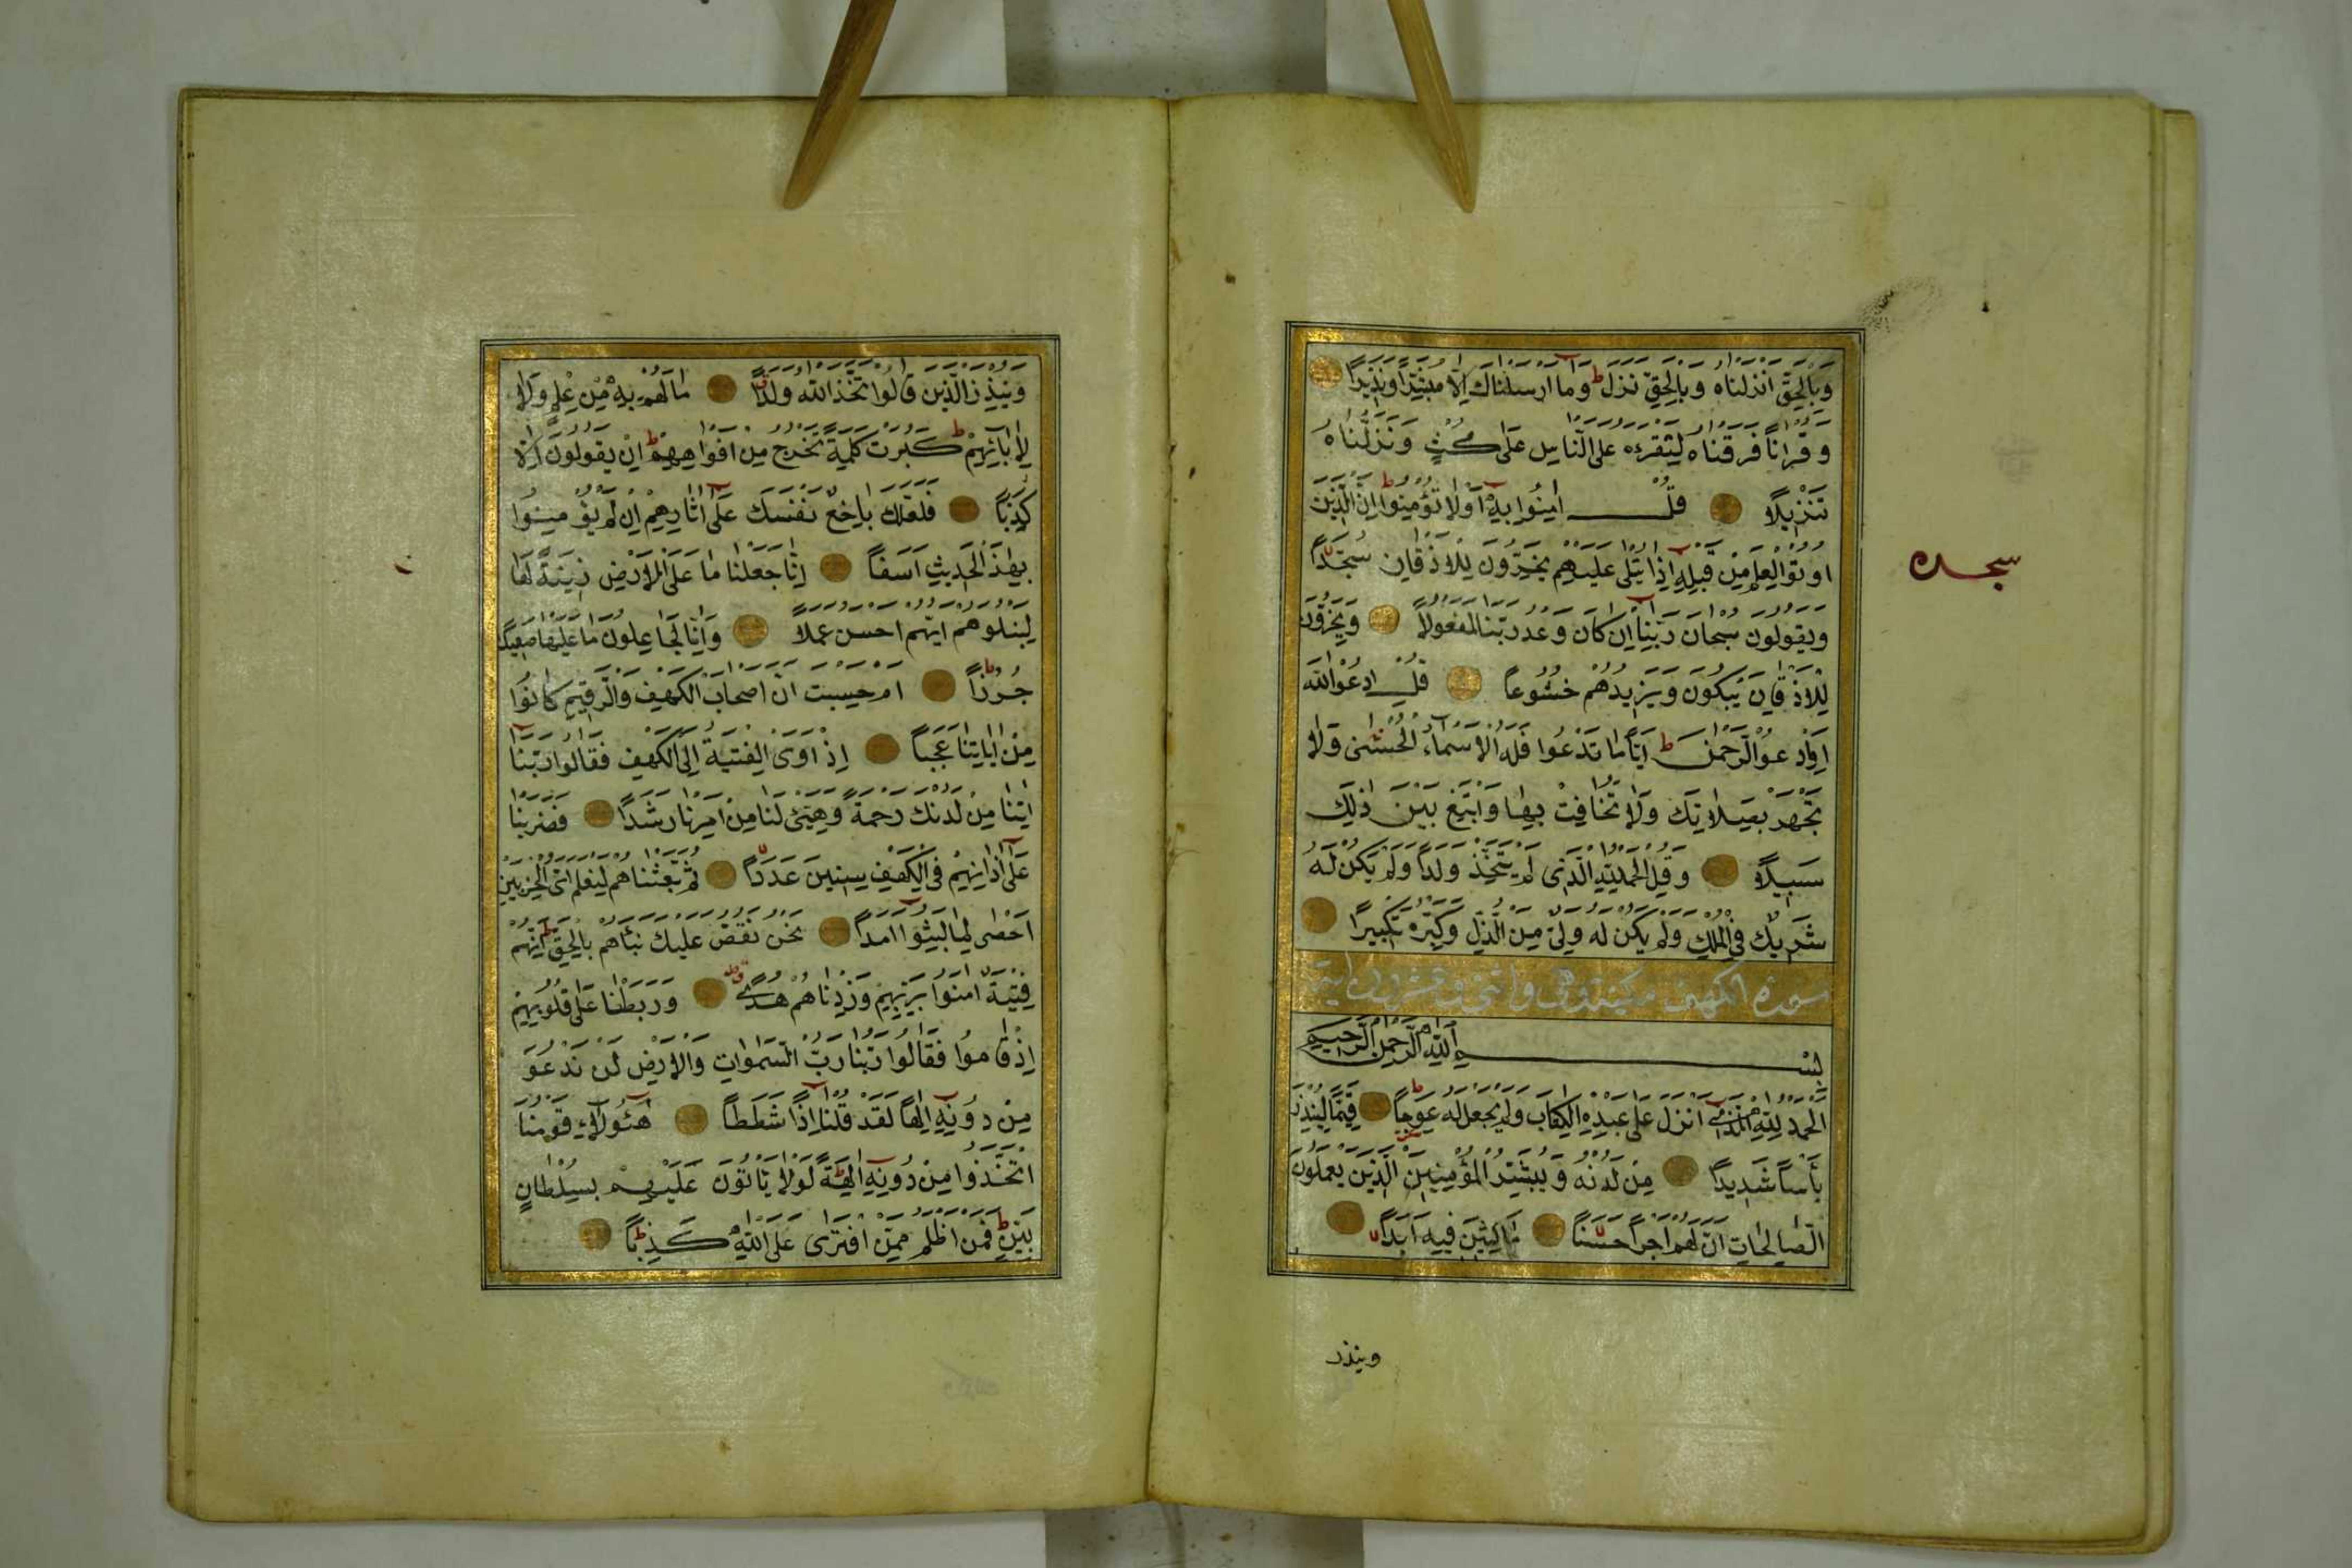 وَبِالْحَقِّ اَنْزَلْنَاهُ وَبِالْحَقِّ نَزَلَ ط وَمَا اَرْسَلْنَاكَ اِلَّا مُبَشِّرًا وَنَذِيرًا
وَقُرْاٰنًا فَرَقْنَاهُ لِتَقْرَءَهُ عَلَى النَّاسِ عَلٰى مُكْثٍ وَنَزَّلْنَاهُ
تَنْزِيلًا قُلْ اٰمِنُوا بِهٖ اَوْلَا تُؤْمِنُوا ط اِنَّ الَّذِينَ
اُوتُوا الْعِلْمَ مِنْ قَبْلِهٖ اِذَا يُتْلٰى عَلَيْهِمْ يَخِرُّونَ لِلْاَذْقَانِ سُجَّدًا
سجده
وَيَقُولُونَ سُبْحَانَ رَبِّنَا اِنْ كَانَ وَعْدُ رَبِّنَا لَمَفْعُولًا وَيَخِرُّونَ
لِلْاَذْقَانِ يَبْكُونَ وَيَزِيدُهُمْ خُشُوعًا قُلِ ادْعُوا اللّٰهَ
اَوِ ادْعُوا الرَّحْمٰنَ ط اَيًّا مَا تَدْعُوا فَلَهُ الْاَسْمَاءُ الْحُسْنٰى وَلَا
تَجْهَرْ بِصَلَاتِكَ وَلَا تُخَافِتْ بِهَا وَابْتَغِ بَيْنَ ذٰلِكَ
سَبِيلًا وَقُلِ الْحَمْدُ لِلّٰهِ الَّذِى لَمْ يَتَّخِذْ وَلَدًا وَلَمْ يَكُنْ لَهُ
شَرِيكٌ فِى الْمُلْكِ وَلَمْ يَكُنْ لَهُ وَلِىٌّ مِنَ الذُّلِّ وَكَبِّرْهُ تَكْبِيرًا
سورة الكهف مكية وهى واثنى وعشرون اية
بِسْمِ اللّٰهِ الرَّحْمٰنِ الرَّحِيمِ
اَلْحَمْدُ لِلّٰهِ الَّذِى اَنْزَلَ عَلٰى عَبْدِهِ الْكِتَابَ وَلَمْ يَجْعَلْ لَهُ عِوَجًا ط قَيِّمًا لِيُنْذِرَ
بَأْسًا شَدِيدًا مِنْ لَدُنْهُ وَيُبَشِّرَ الْمُؤْمِنِينَ الَّذِينَ يَعْمَلُونَ
الصَّالِحَاتِ اَنَّ لَهُمْ اَجْرًا حَسَنًا مَاكِثِينَ فِيهِ اَبَدًا
وينذر
وَيُنْذِرَ الَّذِينَ قَالُوا اتَّخَذَ اللّٰهُ وَلَدًا مَا لَهُمْ بِهٖ مِنْ عِلْمٍ وَلَا
لِاٰبَائِهِمْ ط كَبُرَتْ كَلِمَةً تَخْرُجُ مِنْ اَفْوَاهِهِمْ ط اِنْ يَقُولُونَ اِلَّا
كَذِبًا فَلَعَلَّكَ بَاخِعٌ نَفْسَكَ عَلٰى اٰثَارِهِمْ اِنْ لَمْ يُؤْمِنُوا
بِهٰذَا الْحَدِيثِ اَسَفًا اِنَّا جَعَلْنَا مَا عَلَى الْاَرْضِ زِينَةً لَهَا
لِنَبْلُوَهُمْ اَيُّهُمْ اَحْسَنُ عَمَلًا وَاِنَّا لَجَاعِلُونَ مَا عَلَيْهَا صَعِيدًا
جُرُزًا ط اَمْ حَسِبْتَ اَنَّ اَصْحَابَ الْكَهْفِ وَالرَّقِيمِ كَانُوا
مِنْ اٰيَاتِنَا عَجَبًا اِذْ اَوَى الْفِتْيَةُ اِلَى الْكَهْفِ فَقَالُوا رَبَّنَا
اٰتِنَا مِنْ لَدُنْكَ رَحْمَةً وَهَيِّئْ لَنَا مِنْ اَمْرِنَا رَشَدًا فَضَرَبْنَا
عَلٰى اٰذَانِهِمْ فِى الْكَهْفِ سِنِينَ عَدَدًا ثُمَّ بَعَثْنَاهُمْ لِنَعْلَمَ اَىُّ الْحِزْبَيْنِ
اَحْصٰى لِمَا لَبِثُوا اَمَدًا نَحْنُ نَقُصُّ عَلَيْكَ نَبَاَهُمْ بِالْحَقِّ ط اِنَّهُمْ
فِتْيَةٌ اٰمَنُوا بِرَبِّهِمْ وَزِدْنَاهُمْ هُدًى وَرَبَطْنَا عَلٰى قُلُوبِهِمْ
اِذْ قَامُوا فَقَالُوا رَبُّنَا رَبُّ السَّمٰوَاتِ وَالْاَرْضِ لَنْ نَدْعُوَ
مِنْ دُونِهٖ اِلٰهًا لَقَدْ قُلْنَا اِذًا شَطَطًا هٰؤُلَاءِ قَوْمُنَا
اتَّخَذُوا مِنْ دُونِهٖ اٰلِهَةً ط لَوْلَا يَأْتُونَ عَلَيْهِمْ بِسُلْطَانٍ
بَيِّنٍ ط فَمَنْ اَظْلَمُ مِمَّنِ افْتَرٰى عَلَى اللّٰهِ كَذِبًا ط